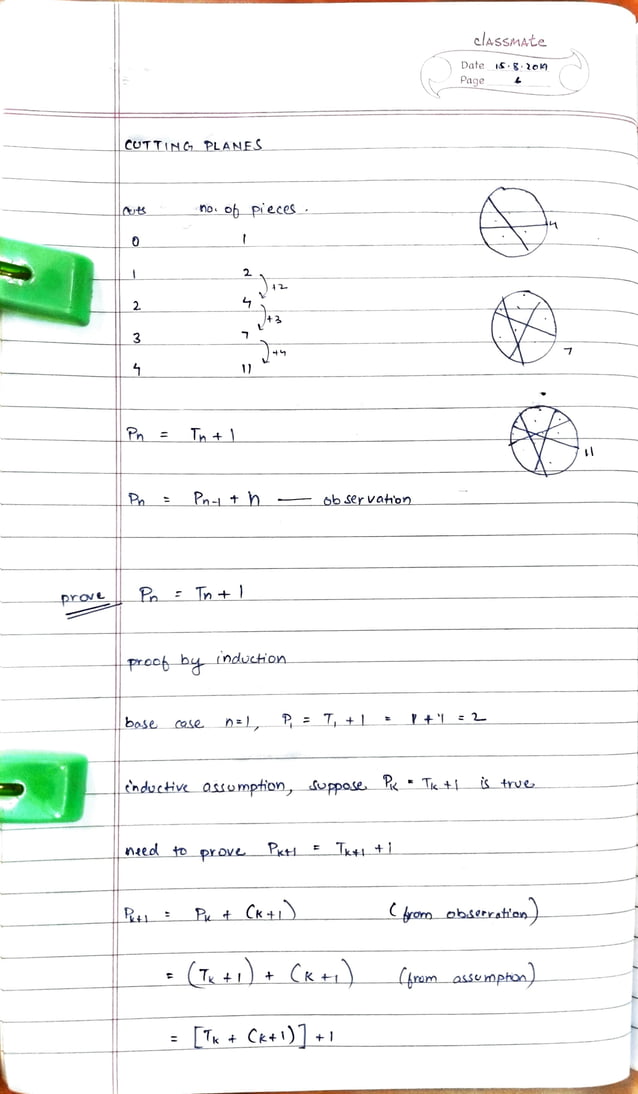 classmate
Date 15.8.2019
Page 6
CUTTING PLANES
cuts no. of pieces.
0 1
1 2
+2
2 4
+3
3 7
+4
4 11
4
7
11
Pn = Tn + 1
Pn = Pn-1 + n — observation
prove Pn = Tn + 1
proof by induction
base case n=1, P1 = T1 + 1 = 1 + 1 = 2
inductive assumption, suppose Pk = Tk + 1 is true
need to prove Pk+1 = Tk+1 + 1
Pk+1 = Pk + (k+1) (from observation)
= (Tk + 1) + (k + 1) (from assumption)
= [Tk + (k+1)] + 1